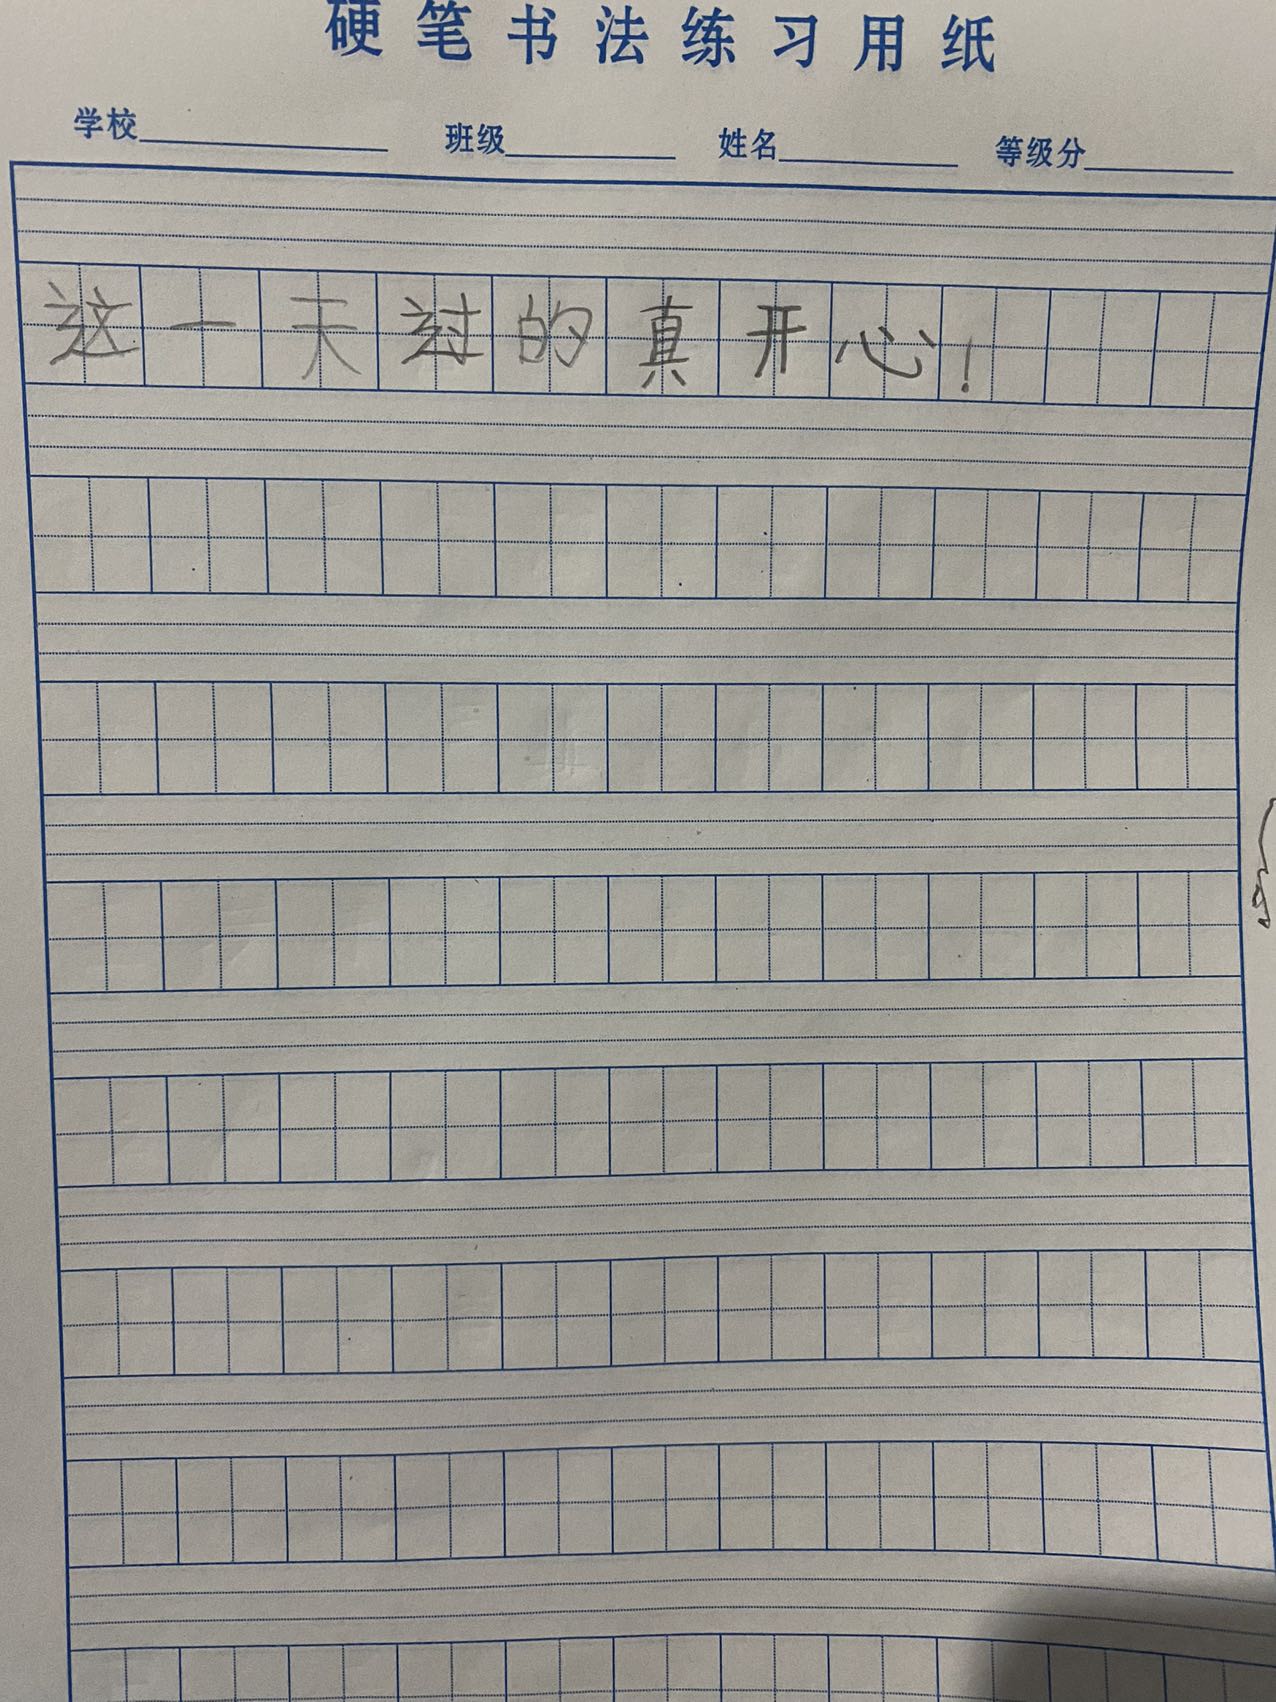 硬笔书法练习用纸
学校 班级 姓名 等级分
这一天过的真开心!